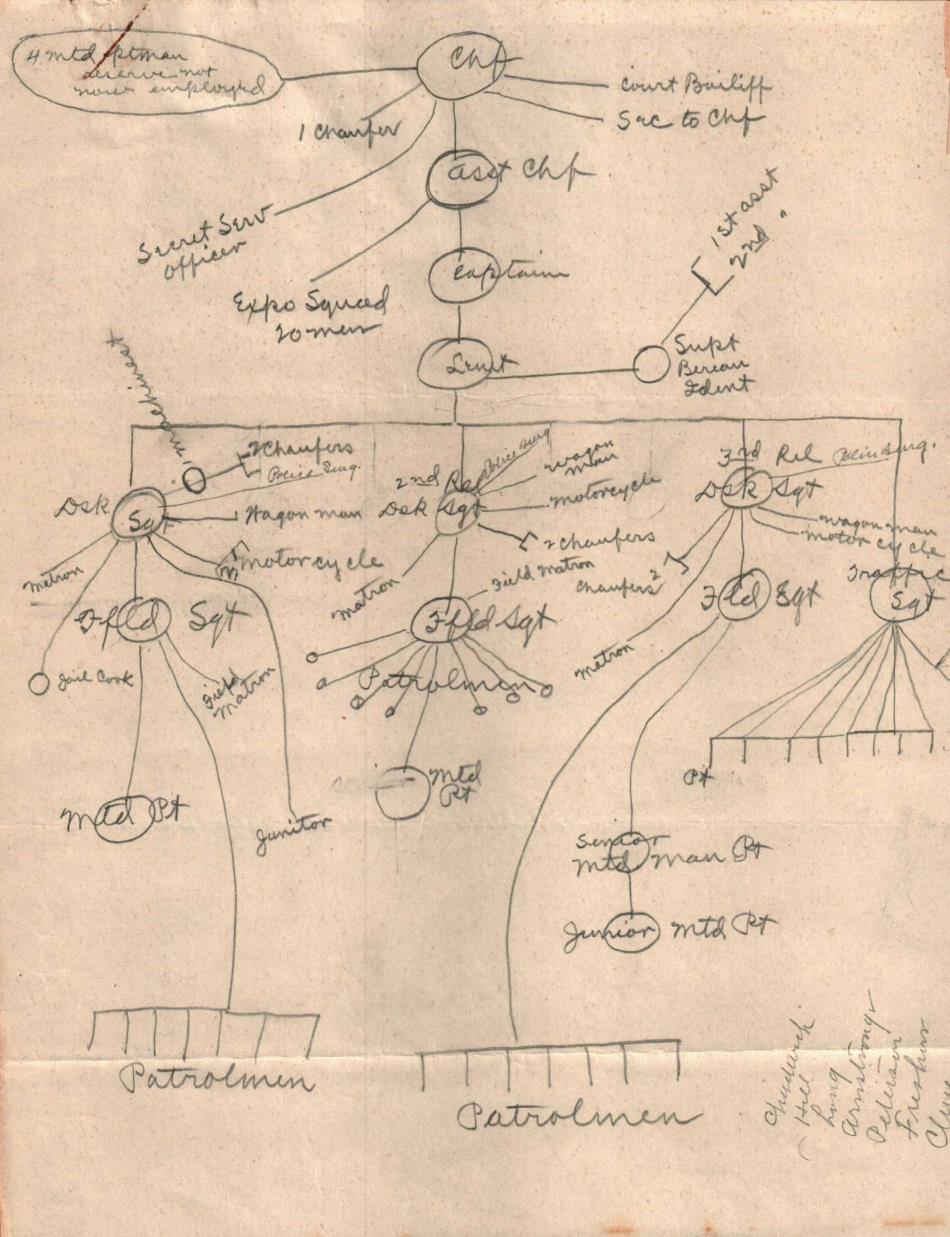 4 mtd ptman
reserve not
now employed
Chf
Court Bailiff
Sec to Chf
1 Chaufer
Asst Chf
Secret Serv
Officer
Expo Squad
20 men
Captain
1st asst
2nd "
Leut
Supt
Bereau
Ident
machinest
2 Chaufers
Police Surg.
Dsk
Sgt
Wagon man
Motorcycle
Matron
2nd Rel
Police Surg
Wagon
Man
Dsk Sgt
Motorcycle
2 Chaufers
Matron
3rd Rel
Police Surg.
Dsk Sgt
Wagon man
Motor cycle
Chaufers 2
Matron
Traffic
Sgt
Field Sgt
Jail Cook
Field
Matron
Field Matron
Field Sgt
Patrolmen
Fld Sgt
Pt
Mtd Pt
Junitor
Mtd
Pt
Senior
Mtd Man Pt
Junior Mtd Pt
Patrolmen
Patrolmen
Hill
Long
Armstrong
Peterson